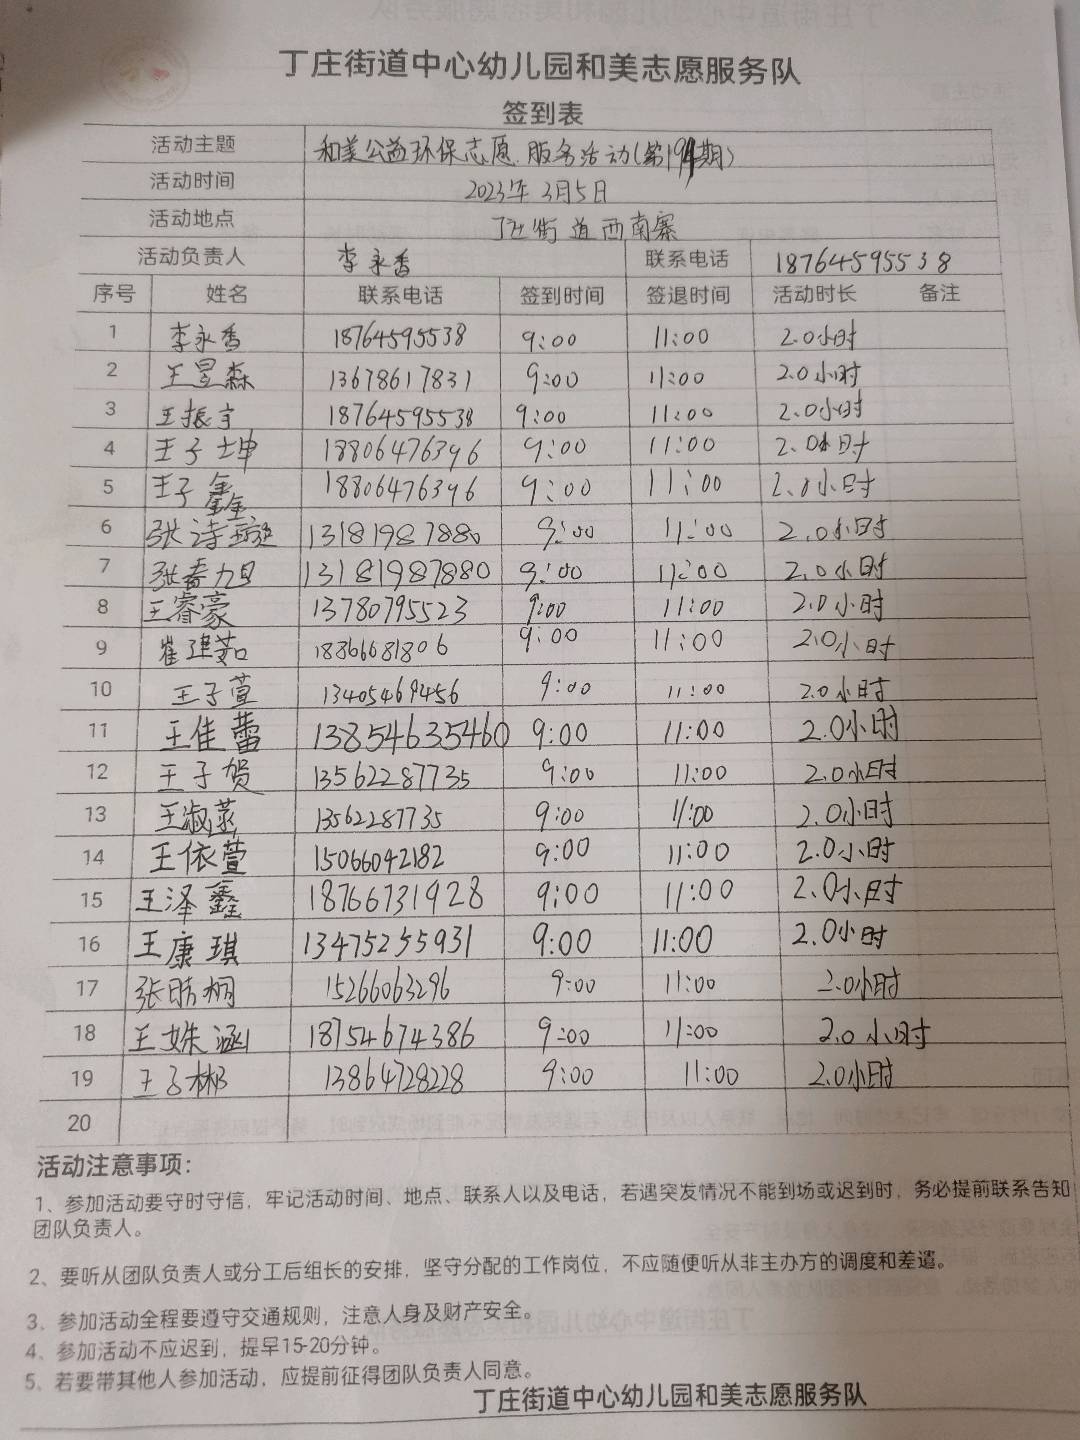 丁庄街道中心幼儿园和美志愿服务队
签到表
活动主题 和美公益环保志愿服务活动(第191期)
活动时间 2023年3月5日
活动地点 丁庄街道西南寨
活动负责人 李永香 联系电话 18764595538
序号 姓名 联系电话 签到时间 签退时间 活动时长 备注
1 李永香 18764595538 9:00 11:00 2.0小时
2 王昱森 13678617831 9:00 11:00 2.0小时
3 王振宇 18764595538 9:00 11:00 2.0小时
4 王子坤 18806476396 9:00 11:00 2.0小时
5 王子鑫 18806476396 9:00 11:00 2.0小时
6 张诗璇 13181987880 9:00 11:00 2.0小时
7 张春旭 13181987880 9:00 11:00 2.0小时
8 王睿豪 13780795523 9:00 11:00 2.0小时
9 崔建茹 18366681806 9:00 11:00 2.0小时
10 王子萱 13405469456 9:00 11:00 2.0小时
11 王佳蕾 13854635460 9:00 11:00 2.0小时
12 王子贺 13562287735 9:00 11:00 2.0小时
13 王淑菡 13562287735 9:00 11:00 2.0小时
14 王依萱 15066042182 9:00 11:00 2.0小时
15 王泽鑫 18766731928 9:00 11:00 2.0小时
16 王康琪 13475255931 9:00 11:00 2.0小时
17 张晴栩 15266063296 9:00 11:00 2.0小时
18 王姝涵 18754674386 9:00 11:00 2.0小时
19 王子彬 13864728228 9:00 11:00 2.0小时
20
活动注意事项：
1、参加活动要守时守信，牢记活动时间、地点、联系人以及电话，若遇突发情况不能到场或迟到时，务必提前联系告知
团队负责人。
2、要听从团队负责人或分工后组长的安排，坚守分配的工作岗位，不应随便听从非主办方的调度和差遣。
3、参加活动全程要遵守交通规则，注意人身及财产安全。
4、参加活动不应迟到，提早15-20分钟。
5、若要带其他人参加活动，应提前征得团队负责人同意。
丁庄街道中心幼儿园和美志愿服务队